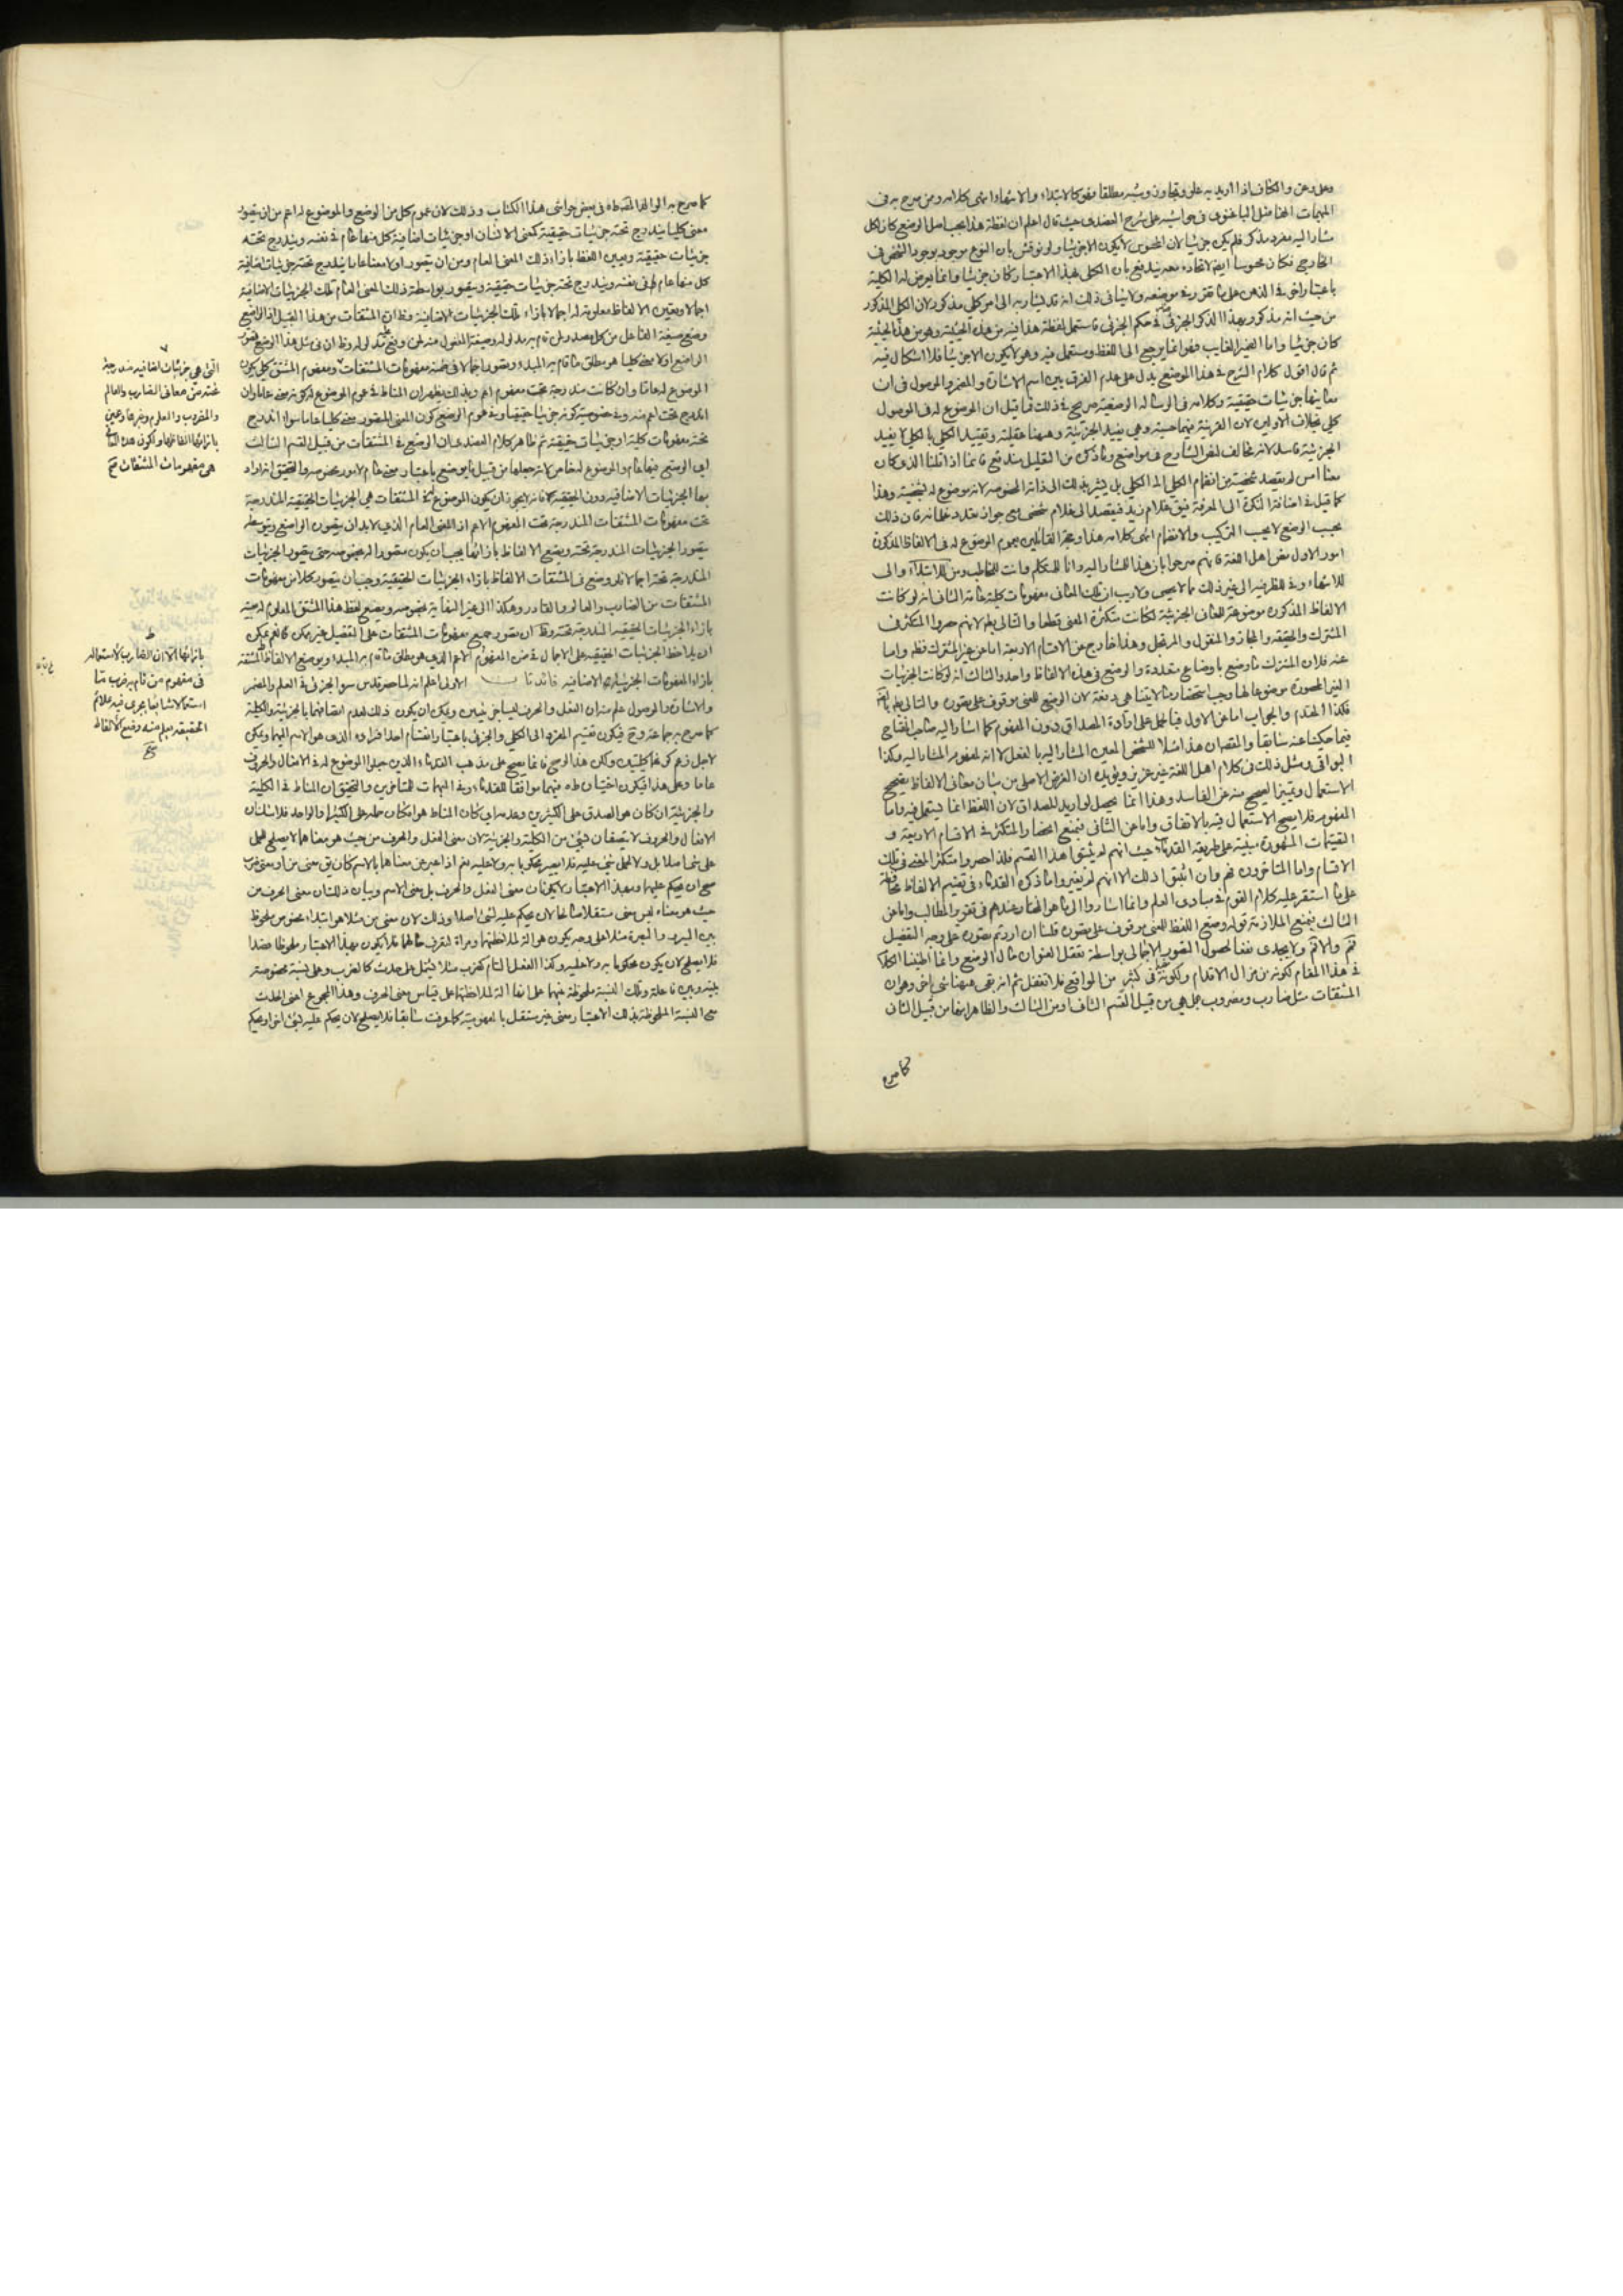 وعلى وعن والكاف اذا اريد به علو وتجاوز وشبه مطلقا فهو كالابتداء والانتهاء انتهى كلامه ومن صرح به في
المبهمات الفاضل الباغنوي في حواشيه على شرح العضدي حيث قال اعلم ان لفظة هذا يجب اصل الوضع كان لكل
مشار اليه مفرد مذكر فلم يكن جزئيا لان المحسوس لا يكون الا جزئيا ولو نوقش بان النوع موجود بوجود الشخص في
الخارج فكان محسوسا ايضا لاتحاده معه يندفع بان الكلي بهذا الاعتبار كان جزئيا وانما يعرض له الكلية
باعتبار اخر في الذهن على ما تقرر في موضعه ولا ينافي ذلك انه قد يشار به الى امر كلي مذكور لان الكلي المذكور
من حيث انه مذكور بهذا الذكر الجزئي في حكم الجزئي فاستعمل لفظة هذا فيه من هذه الحيثية وهو من هذه الحيثية
كان جزئيا واما الضمير الغايب فهو انما يرجع الى اللفظ ويستعمل فيه وهو لا يكون الا جزئيا فلا اشكال فيه
ثم قال اقول كلام الشرح في هذا الموضع يدل على عدم الفرق بين اسم الاشارة والمضمر والموصول في ان
معانيها جزئيات حقيقية وكلامه في الرسالة الوضعية صريح في ذلك فما قيل ان الموضوع له في الموصول
كلي بخلاف الاولين لان القرينة فيهما حسية وهي يفيد الجزئية وههنا عقلية وتقييد الكلي بالكلي لا يفيد
الجزئية فاسد لانه مخالف لنص الشارح في مواضع وما ذكر من التعليل مندفع فانما اذا قلنا الذي كان
معنا امس لم يقصد شخصية من انضمام الكلي الى الكلي بل يشير بذلك الى ذاته المخصوصة لانه موضوع له لشخصية وهذا
كما قيل في اضافة النكرة الى المعرفة فيق غلام زيد فيقصد الى غلام شخصي مع جواز تعدد غلمانه فان ذلك
بحسب الوضع لا بحسب التركيب والانضمام انتهى كلامه هذا وحجة القائلين بعموم الموضوع له في الالفاظ المذكورة
امور الاول نص اهل اللغة فانهم صرحوا بان هذا للمشار اليه وانا للمتكلم وانت للمخاطب ومن للابتداء والى
للانتهاء وفي للظرفية الى غير ذلك مما لا يحصى ولا ريب ان تلك المعاني مفهومات كلية عامة الثاني انه لو كانت
الالفاظ المذكورة موضوعة للمعاني الجزئية لكانت متكثرة المعنى قطعا والتالي بطم لانهم حصروا المتكثر في
المشترك والحقيقة والمجاز والمنقول والمرتجل وهذا خارج عن الاقسام الاربعة اما عن غير المشترك فظم واما
عنه فلان المشترك ما وضع باوضاع متعددة والوضع في هذه الالفاظ واحد والثالث انه لو كانت الجزئيات
الغير المحصورة موضوعا لها وجب استحضار ما لا يتناهى دفعة لان الوضع للمعنى موقوف على تصوره والتالي بطم بالضرورة
فكذا المقدم والجواب اما عن الاول فبالحمل على ارادة المصداق دون المفهوم كما اشار اليه صاحب المفتاح
فيما حكينا عنه سابقا والمقصد ان هذا مثلا للشخص المعين المشار اليه بالفعل لا انه لمفهوم المشار اليه وكذا
البواقي ومثل ذلك في كلام اهل اللغة غير عزيز ويؤيده ان الغرض الاصلي من بيان معاني الالفاظ تصحيح
الاستعمال وتمييز الصحيح منه عن الفاسد وهذا انما يحصل لو اريد المصداق لان اللفظ انما يستعمل فيه واما
المفهوم فلا يصح الاستعمال فيه بالاتفاق واما عن الثاني فبمنع انحصار المتكثر في الاقسام الاربعة و
التقسيمات المشهورة مبنية على طريقة القدماء حيث انهم لم يثبتوا هذا القسم فلذا حصروا متكثر المعنى في تلك
الاقسام واما المتاخرون فهم وان اثبتوا ذلك الا انهم لم يغيروا ما ذكره القدماء في تقسيم الالفاظ محافظة
على ما استقر عليه كلام القوم في مبادي العلم وانما اشاروا الى ما هو المختار عندهم في تقرير المطالب واما عن
الثالث فبمنع الملازمة قوله وضع اللفظ للمعنى موقوف على تصوره قلنا ان اردتم تصوره على وجه التفصيل
فمم والا فم ولا يجدي نفعا لحصول التصور الاجمالي بواسطة تعقل العنوان حال الوضع وانما اطنبنا الكلام
في هذا المقام لكونه من مزال الاقدام ولكونه في كثير من المواقع فلا تغفل ثم انه بقي ههنا شئ اخر وهو ان
المشتقات مثل ضارب ومضروب هل هي من قبيل القسم الثاني او من الثالث والظاهر انها من قبيل الثاني
كما صرح
كما صرح به الوالد في بعض حواشي هذا الكتاب وذلك لان عموم كل من الوضع والموضوع له اعم من ان يتصور
معنى كليا يندرج تحته جزئيات حقيقية كمعنى الانسان او جزئيات اضافية كل منها عام في نفسه ويندرج تحته
جزئيات حقيقية ويعين اللفظ بازاء ذلك المعنى العام ومن ان يتصور اولا معنا عاما يندرج تحته جزئيات اضافية
كل منها عام في نفسه ويندرج تحته جزئيات حقيقية ويتصور بواسطة ذلك المعنى العام تلك الجزئيات الاضافية
اجمالا ويعين الالفاظ معلومة له اجمالا بازاء تلك الجزئيات الاضافية وظ ان المشتقات من هذا القبيل اذ الواضع
وضع صيغة الفاعل من كل مصدر لمن قام به مدلوله وصيغة المفعول منه لمن وقع عليه مدلوله وظ ان في مثل هذا الوضع تصور
الواضع اولا معنى كليا هو مطلق ما قام به المبدء وتصور اجمالا في ضمنه مفهومات المشتقات ومفهوم المشتق كلي يكون
الموضوع له عاما وان كانت مندرجة تحت مفهوم اعم وبذلك يظهر ان المناط في عموم الموضوع له كونه معنى عاما وان
اندرج تحت اعم منه وفي خصوصيته كونه جزئيا حقيقيا وفي عموم الوضع كون المعنى المتصور معنى كليا عاما سواء اندرج
تحته مفهومات كلية او جزئيات حقيقية ثم ظاهر كلام العضدي ان الوضع في المشتقات من قبيل القسم الثالث
اي الوضع فيها عام والموضوع له خاص لانه جعلها من قبيل ما يوضع باعتبار معنى عام لامور مخصوصة والتحقيق انه اراد
بها الجزئيات الاضافية دون الحقيقية فانه لا يجوز ان يكون الموضوع له في المشتقات هي الجزئيات الحقيقية المندرجة
تحت مفهومات المشتقات المندرجة تحت المفهوم الاعم اذ المعنى العام الذي لا بد ان يتصوره الواضع ويتوسطه
يتصور الجزئيات المندرجة تحته ويضع الالفاظ بازائها يجب ان يكون متصورا له بخصوصه حتى يتصور الجزئيات
المندرجة تحته اجمالا فلو وضع في المشتقات الالفاظ بازاء الجزئيات الحقيقية وجب ان يتصور كلا من مفهومات
المشتقات من الضارب والعالم والقادر وهكذا الى غير النهاية بخصوصه ويضع لفظ هذا المشتق المعلوم له بعينه
بازاء الجزئيات الحقيقية المندرجة تحته وظ ان تصور جميع مفهومات المشتقات على التفصيل غير ممكن نعم يمكن
ان يلاحظ الجزئيات الحقيقية على الاجمال في ضمن المفهوم الاعم الذي هو مطلق ما قام به المبدء ويوضع الالفاظ المشتقة
بازاء المفهومات الجزئيات الاضافية فائدتان الاولى اعلم انه لما حصر قدس سره الجزئي في العلم والمضمر
والاشارة والموصول علم منه ان الفعل والحرف ليسا جزئيين ويمكن ان يكون ذلك لعدم اتصافهما بالجزئية والكلية
كما صرح به جماعة وح فيكون تقسيم المفرد الى الكلي والجزئي باعتبار انقسام احد افراده الذي هو الاسم اليهما ويمكن
لاجل زعم كونهما كليتين ولكن هذا الوجه انما يصح على مذهب القدماء الذين جعلوا الموضوع له في الافعال والحروف
عاما وعلى هذا فيكون اختياره فيهما موافقا للقدماء وفي المبهمات للمتاخرين والتحقيق ان المناط في الكلية
والجزئية ان كان هو الصدق على الكثيرين وعدمه اي كان المناط هو امكان حمله على الكثير او الواحد فلا شك ان
الافعال والحروف لا يتصفان بشئ من الكلية والجزئية لان معنى الفعل والحرف من حيث هو معناهما لا يصلح لحمل
على شئ اصلا بل ولا لحمل شئ عليه فلا يصير محكوما به ولا عليه نعم اذا عبر عن معناهما بالاسم كان يق معنى من او معنى ضرب
صح ان يحكم عليهما وبهذا الاعتبار لا يكونان معنى الفعل والحرف بل معنى الاسم وبيان ذلك ان معنى الحرف من
حيث هو معناه ليس معنى مستقلا صالحا لان يحكم عليه بشئ اصلا وذلك لان معنى من مثلا هو ابتداء مخصوص ملحوظ
بين السير والبصرة مثلا على وجه يكون هو آلة لملاحظتهما ومرآة لتعرف حالهما فلا يكون بهذا الاعتبار ملحوظا قصدا
فلا يصلح لان يكون محكوما به ولا عليه وكذا الفعل التام كضرب مثلا يشتمل على حدث كالضرب وعلى نسبة مخصوصة
بينه وبين فاعله وتلك النسبة ملحوظة بينهما على انها آلة لملاحظتهما على قياس معنى الحرف وهذا المجموع اعني الحدث
مع النسبة الملحوظة بذلك الاعتبار معنى غير مستقل بالمفهومية كما عرفت سابقا فلا يصلح لان يحكم عليه بشئ اخر او يحكم
التي هي جزئيات اضافية مندرجة
تحته من معاني الضارب والعالم
والمضروب والمعلوم وغيرها وعين
بازائها الفاظها ولكون هذه المعاني
هي مفهومات المشتقات صح
بازائها الا ان الضارب لاستعماله
في مفهوم من قام به ضرب ما
استعمالا شايعا يجري فيه علائم
الحقيقة يعلم منه وضع الالفاظ
صح